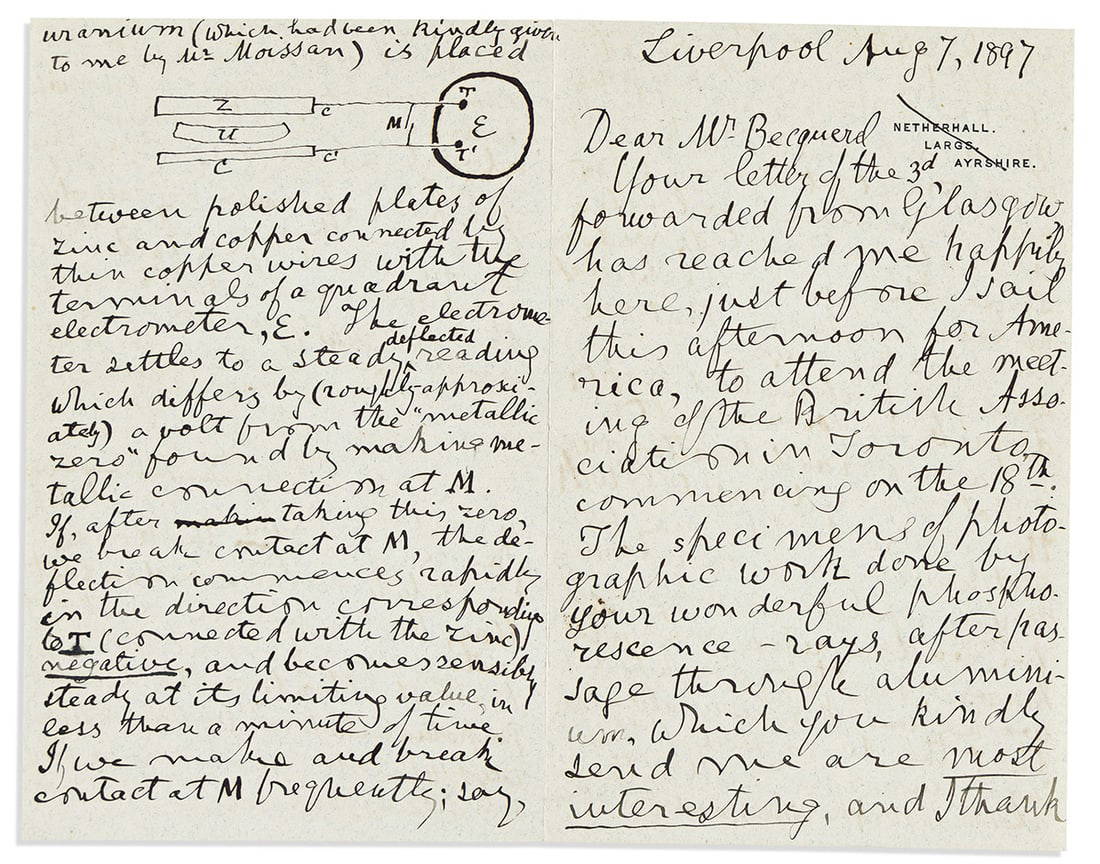 Liverpool Aug 7, 1897
NETHERHALL.
LARGS,
AYRSHIRE.
Dear Mr Becquerel
Your letter of the 3d
forwarded from Glasgow
has reached me happily
here, just before I sail
this afternoon for Ame-
rica, to attend the meet-
ing of the British Asso-
ciation in Toronto,
commencing on the 18th.
The specimens of photo-
graphic work done by
your wonderful phospho-
rescence-rays, after pas-
sage through alumini-
um, which you kindly
send me are most
interesting, and I thank
uranium (which had been kindly given
to me by Mr Moissan) is placed
Z C T
U M E
C C' T'
between polished plates of
zinc and copper connected by
thin copper wires with the
terminals of a quadrant
electrometer, E. The electrome-
ter settles to a steady deflected reading
which differs by (roughly approxi-
ately) a volt from the "metallic
zero" found by making me-
tallic connection at M.
If, after taking this zero,
we break contact at M, the de-
flection commences rapidly
in the direction corresponding
to T (connected with the zinc)
negative, and becomes sensibly
steady at its limiting value, in
less than a minute of time
If we make and break
contact at M frequently; say,